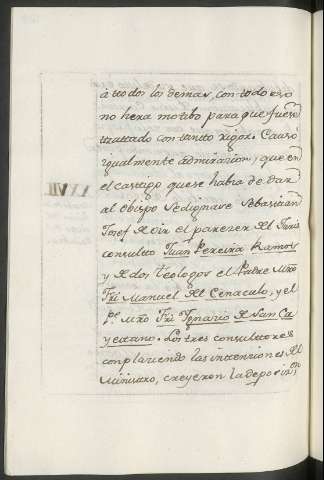 à todos los demas, con todo eso
no hera motibo para que fuese
tratado con tanto rigor. Causó
igualmente admiracion, que en
el castigo que se habia de dar
al obispo se dignase Sebastian
Josef de oir el parecer del Juris
consulto Juan Pereira Ramos
y de dos teologos el Padre Mro
Fri Manuel del Cenaculo, y el
Pe. Mro Fri Ignacio de San Ca
yetano. Los tres consultores
complaciendo las intenciones del
Ministro, creyeron la deposicion